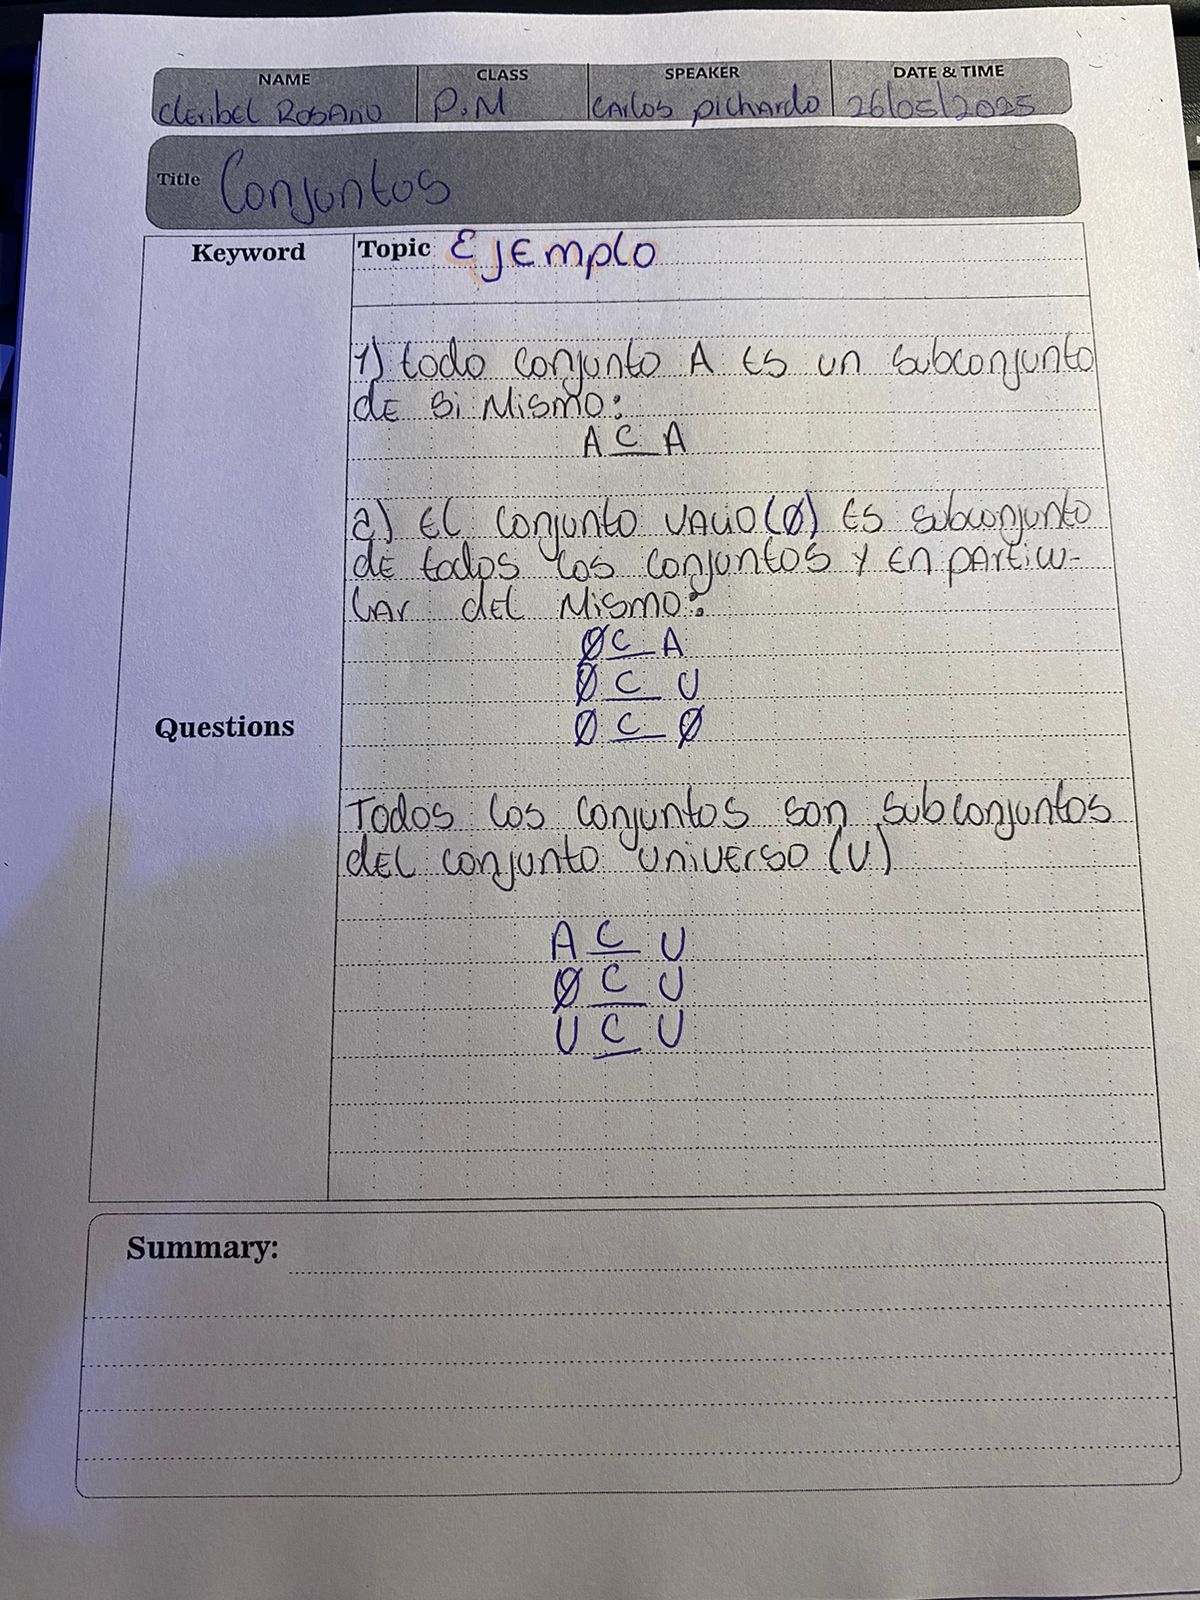 NAME CLASS SPEAKER DATE & TIME
Cleribel Rosario P.M Carlos Pichardo 26/05/2025
Title Conjuntos
Keyword Topic Ejemplo
1) todo conjunto A es un subconjunto
de si mismo:
A ⊆ A
2) El conjunto vacio (∅) es subconjunto
de todos los conjuntos y en particu-
lar del mismo:
∅ ⊆ A
∅ ⊆ U
Questions
∅ ⊆ ∅
Todos los conjuntos son subconjuntos
del conjunto universo (U)
A ⊆ U
∅ ⊆ U
U ⊆ U
Summary: